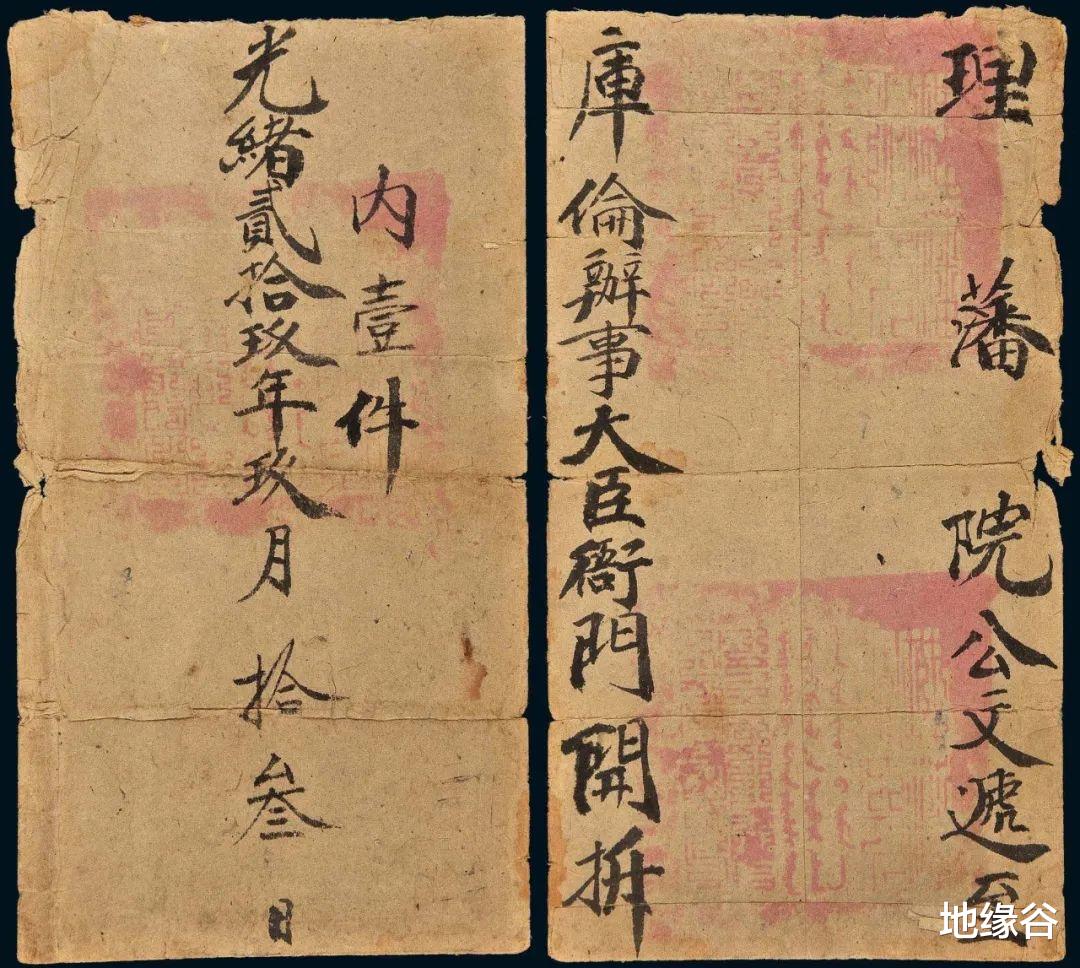 理藩院公文遞至
庫倫辦事大臣衙門開拆
內壹件
光緒貳拾玖年玖月拾叁日
地缘谷